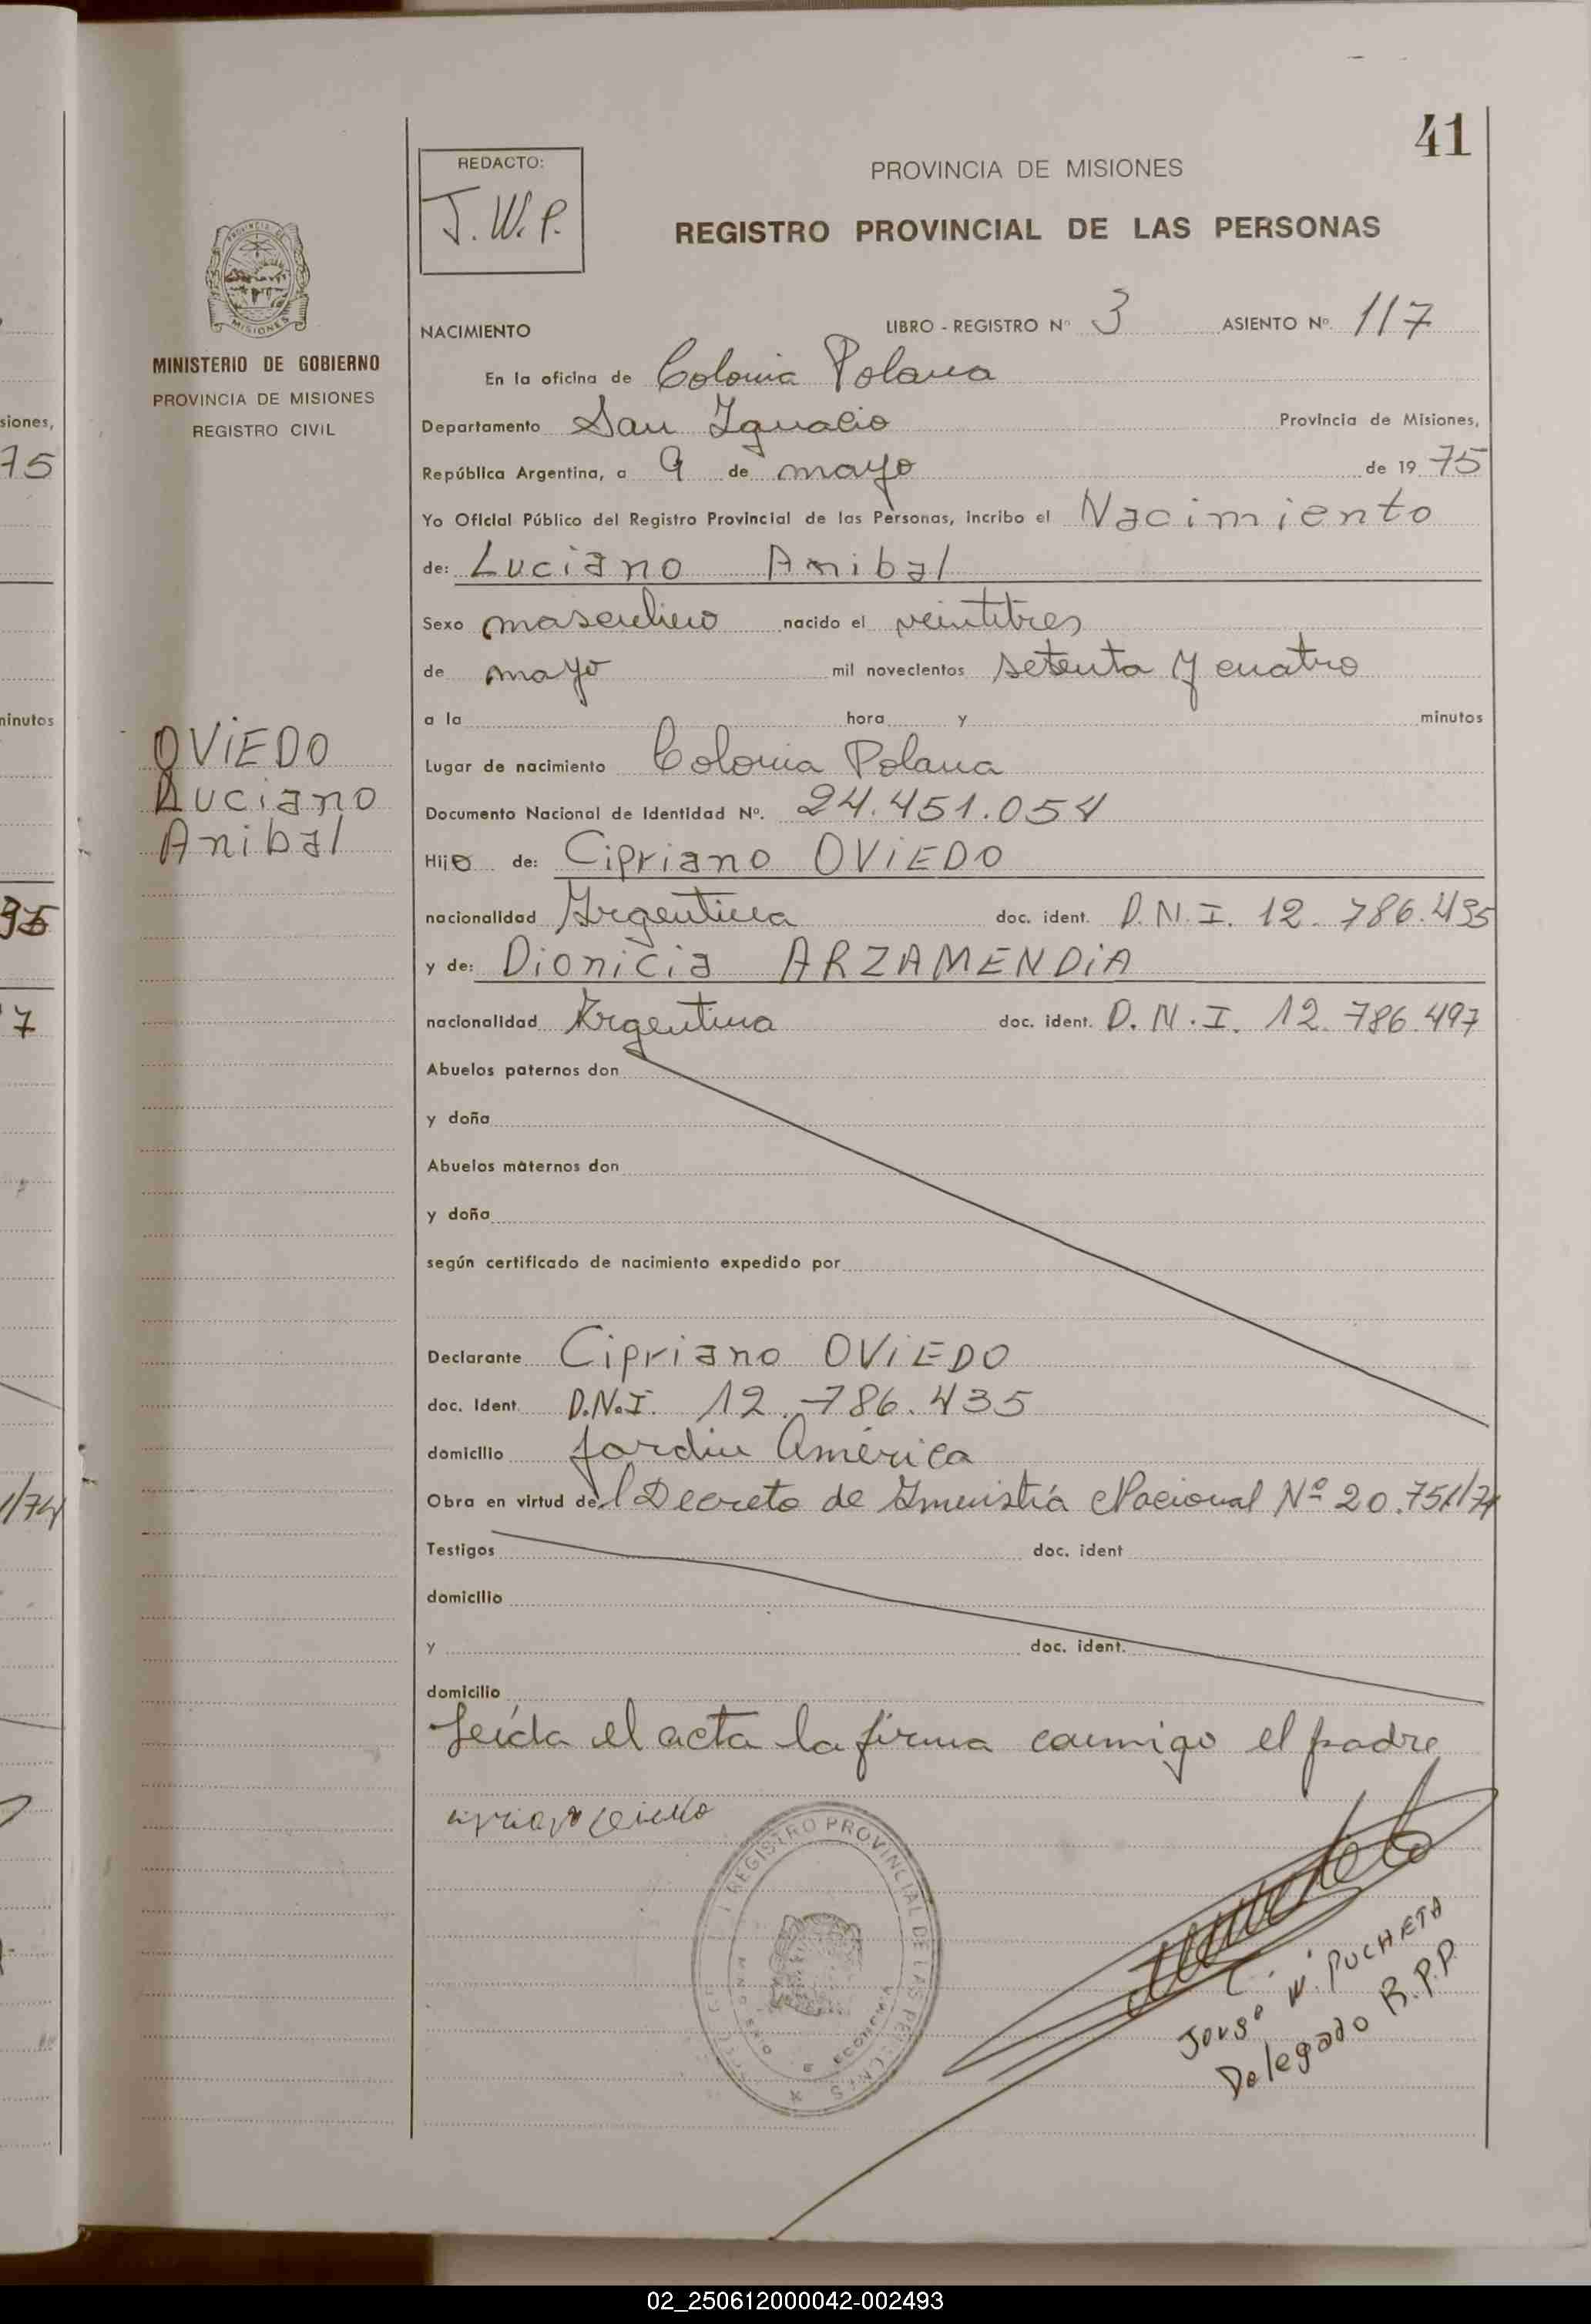 41
REDACTO:
J.W.P.
PROVINCIA DE MISIONES
REGISTRO PROVINCIAL DE LAS PERSONAS
MISIONES
MINISTERIO DE GOBIERNO
PROVINCIA DE MISIONES
REGISTRO CIVIL
NACIMIENTO LIBRO - REGISTRO Nº 3 ASIENTO Nº. 117
En la oficina de Colonia Polana
Departamento San Ignacio Provincia de Misiones,
República Argentina, a 9 de mayo de 19 75
Yo Oficial Público del Registro Provincial de las Personas, incribo el Nacimiento
de: Luciano Anibal
Sexo masculino nacido el veintitres
de mayo mil novecientos setenta y cuatro
a la hora y minutos
OVIEDO
Luciano
Anibal
Lugar de nacimiento Colonia Polana
Documento Nacional de Identidad Nº. 24.451.054
Hijo de: Cipriano OVIEDO
nacionalidad Argentina doc. ident. D.N.I. 12.786.435
y de: Dionicia ARZAMENDIA
nacionalidad Argentina doc. ident. D.N.I. 12.786.497
Abuelos paternos don
y doña
Abuelos maternos don
y doña
según certificado de nacimiento expedido por
Declarante Cipriano OVIEDO
doc. Ident. D.N.I. 12.786.435
domicilio Jardin América
Obra en virtud del Decreto de Amnistía Nacional Nº 20.751/74
Testigos doc. ident
domicilio
y doc. ident.
domicilio
Leída el acta la firma conmigo el padre
REGISTRO PROVINCIAL DE LAS PERSONAS
ECONOMIA
Jorge W. PUCHETA
Delegado R.P.P.
siones,
75
minutos
95
7
1/74
02_250612000042-002493